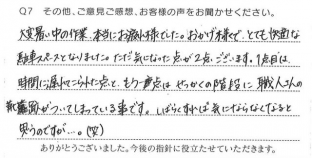 Q7 その他、ご意見ご感想、お客様の声をお聞かせください。
大変暑い中の作業、本当にお疲れ様でした。おかげ様で、とても快適な
駐車スペースとなりました。ただ気になった点が2点ございます。1点目は、
時間に遅れてこられた点と、もう一点は せっかくの階段に 職人さんの
靴跡がついてしまっている事です。しばらくすれば気にならなくなると
思うのですが…。(笑)
ありがとうございました。今後の指針に役立たせていただきます。